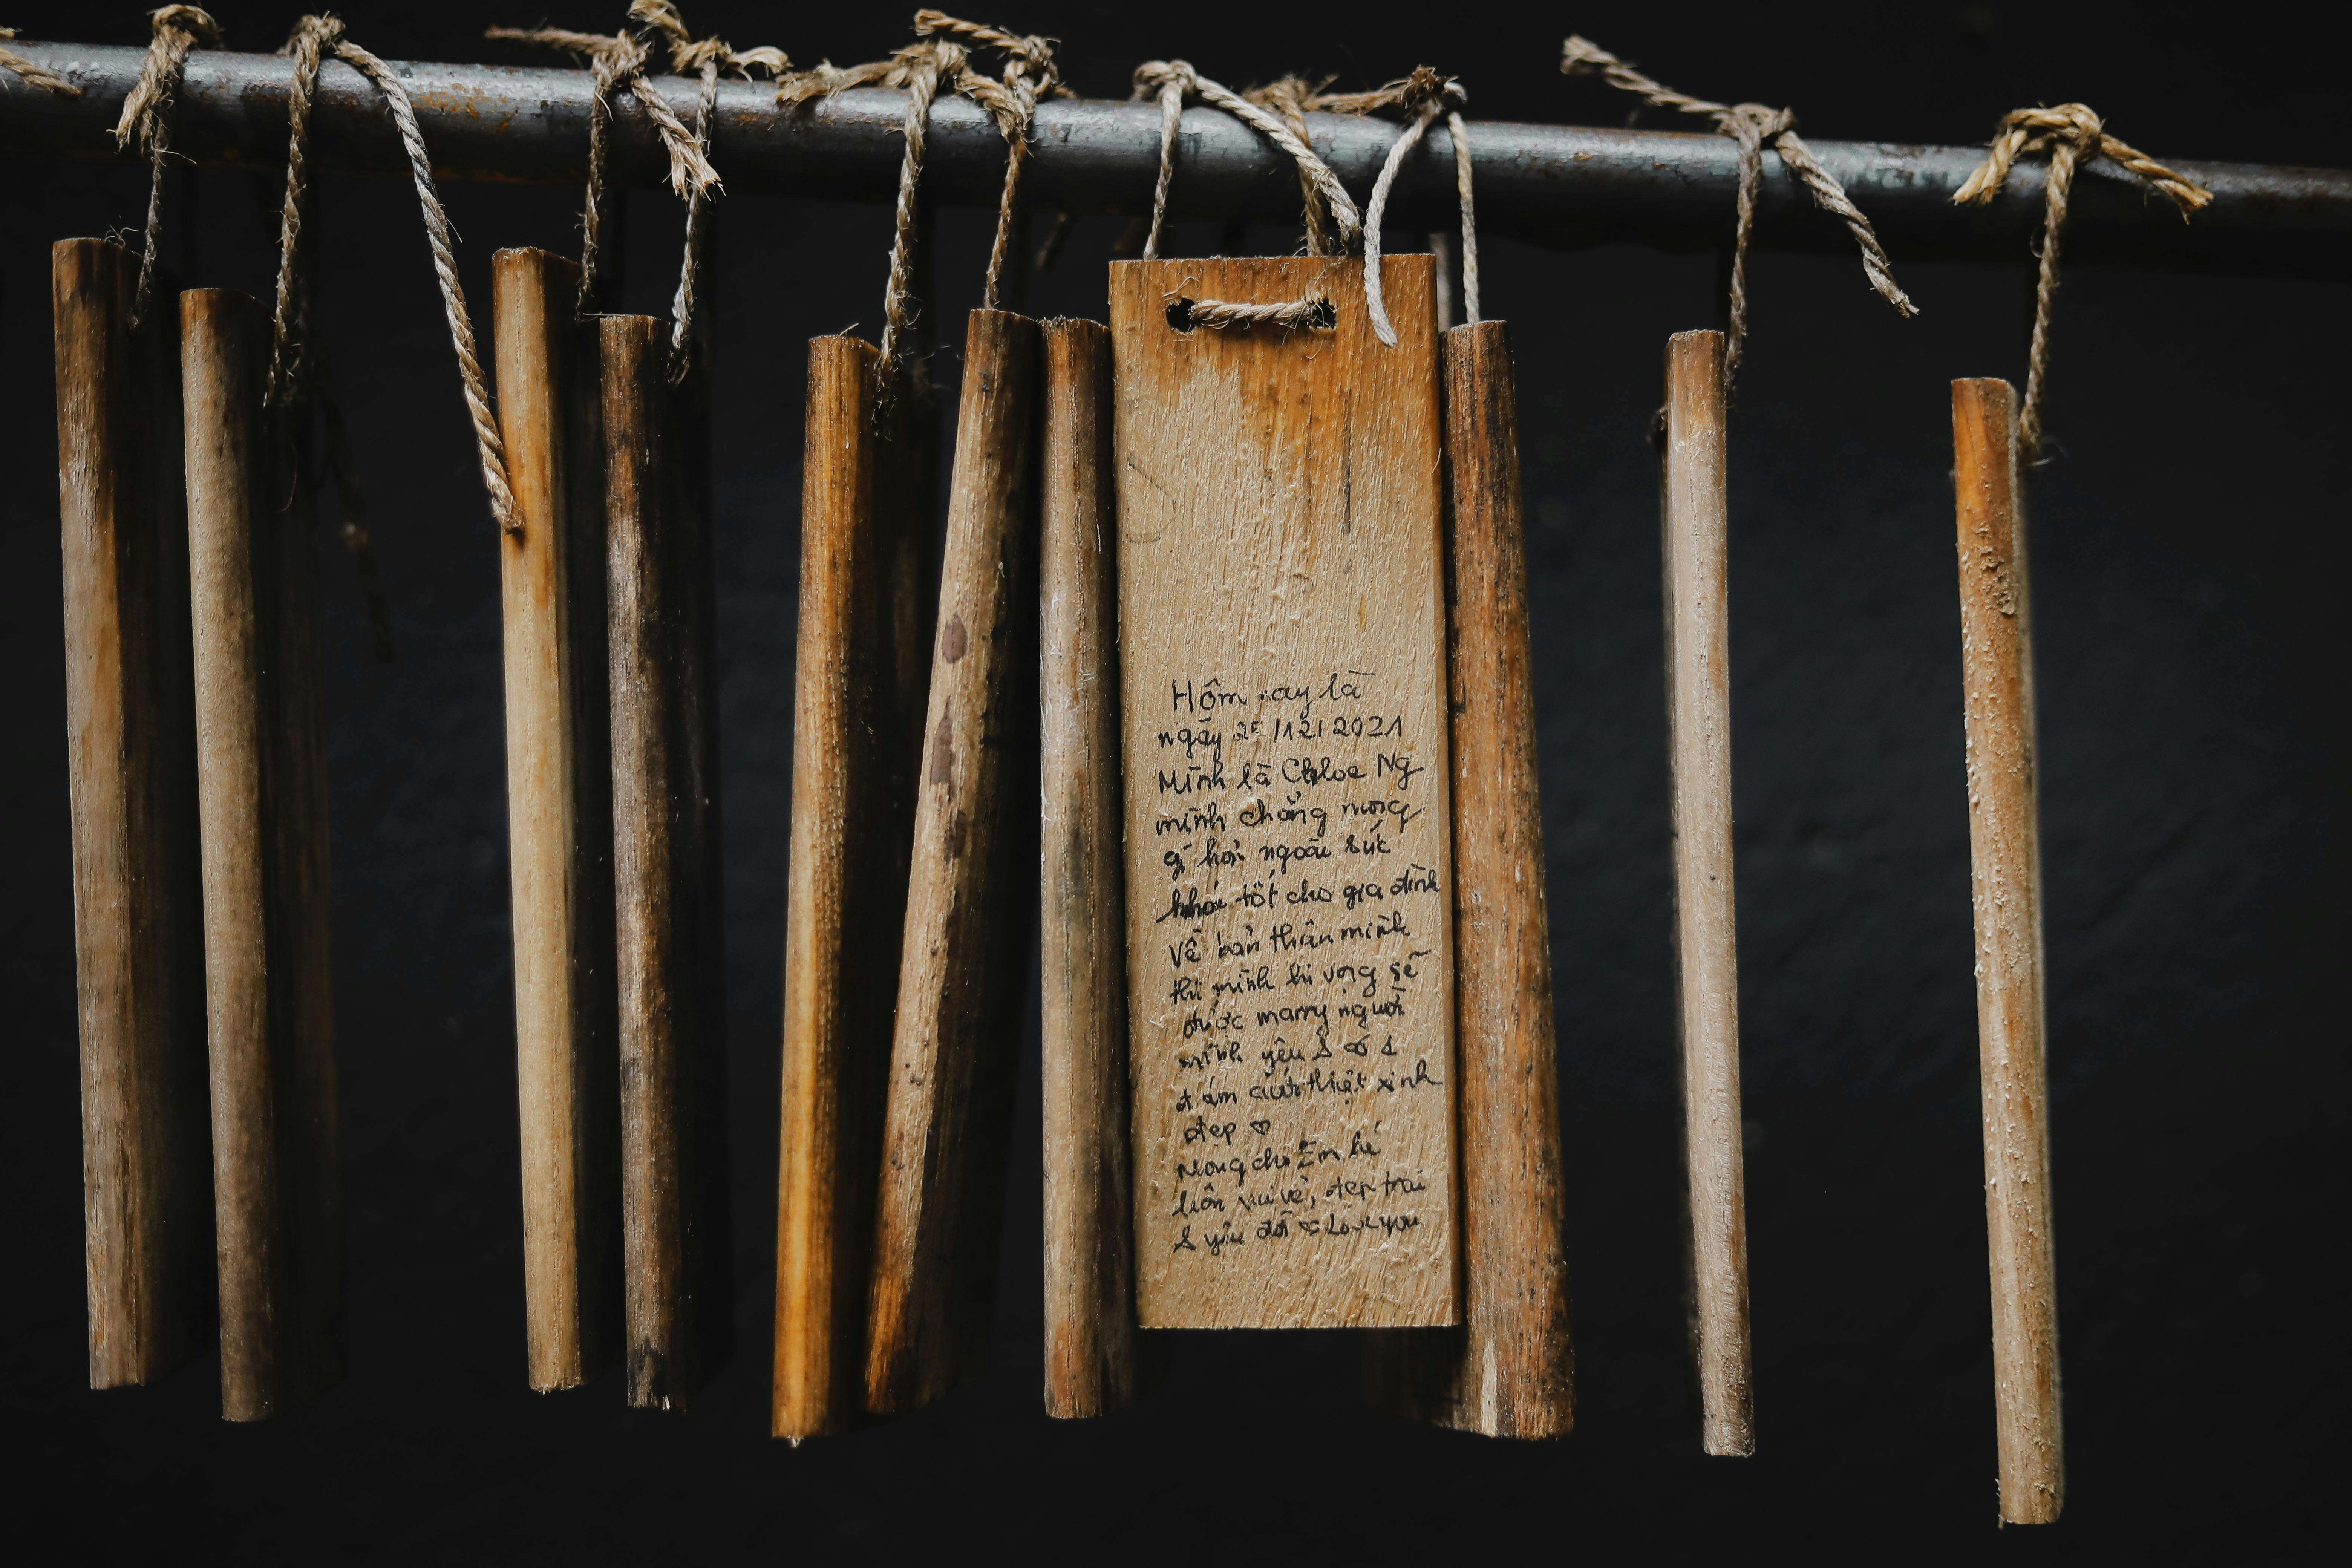 Hôm nay là
ngày 25/12/2021
Mình là Chloe Ng
mình chẳng mong
gì hơn ngoài sức
khỏe tốt cho gia đình
Về bản thân mình
thì mình hi vọng sẽ
được marry người
mình yêu & có 1
đám cưới thiệt xinh
đẹp ♡
Mong cho Em bé
luôn vui vẻ, đẹp trai
& yêu đời Love you